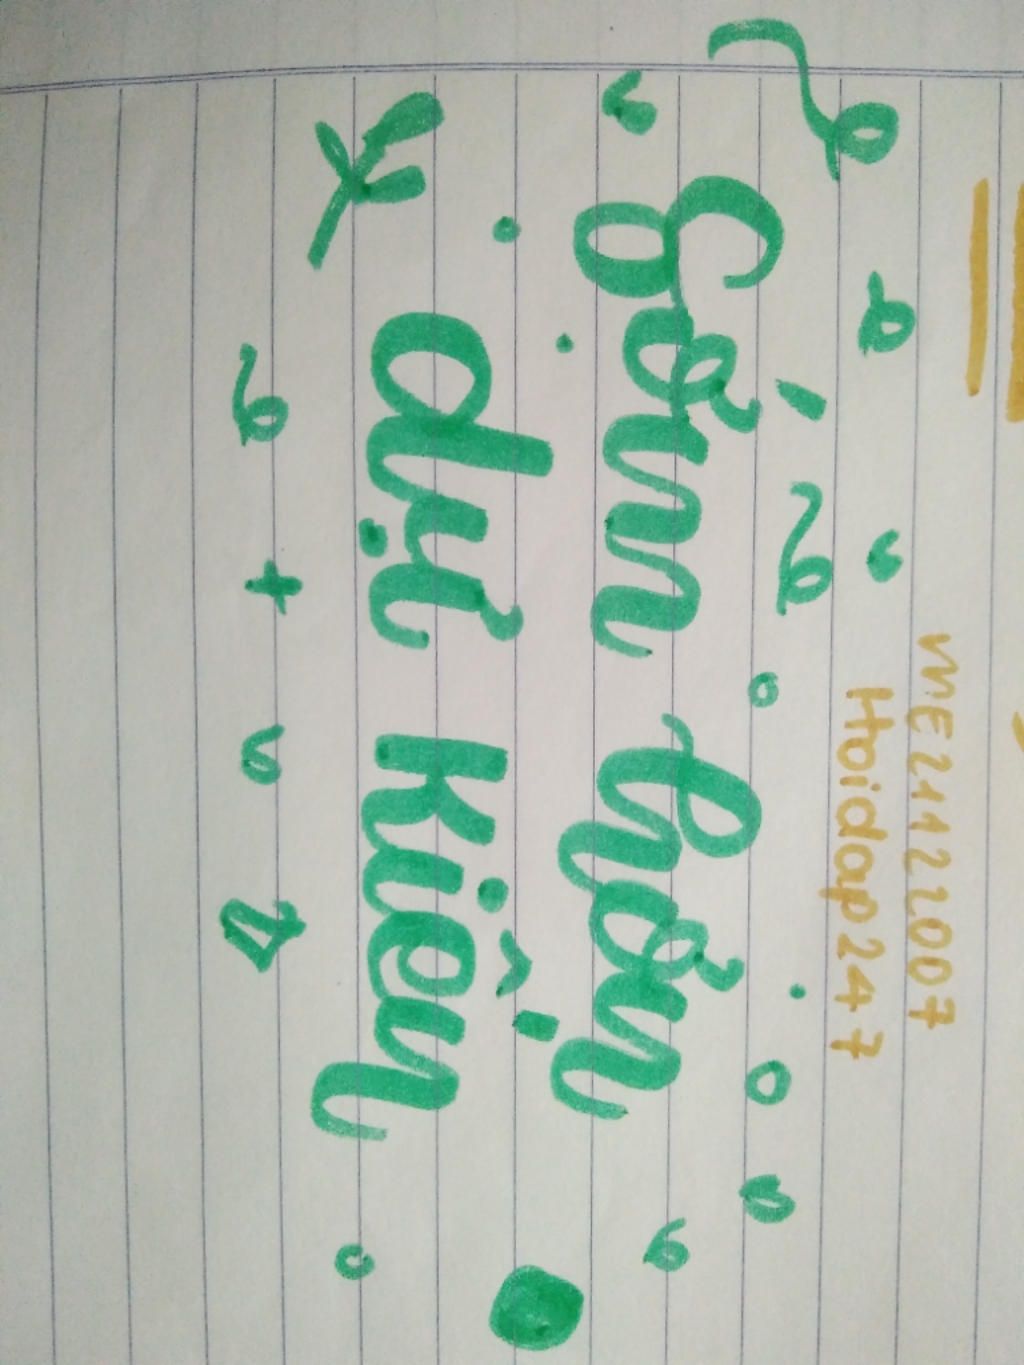 ME21122007
Hoidap247
Sớm hơn
dự kiến